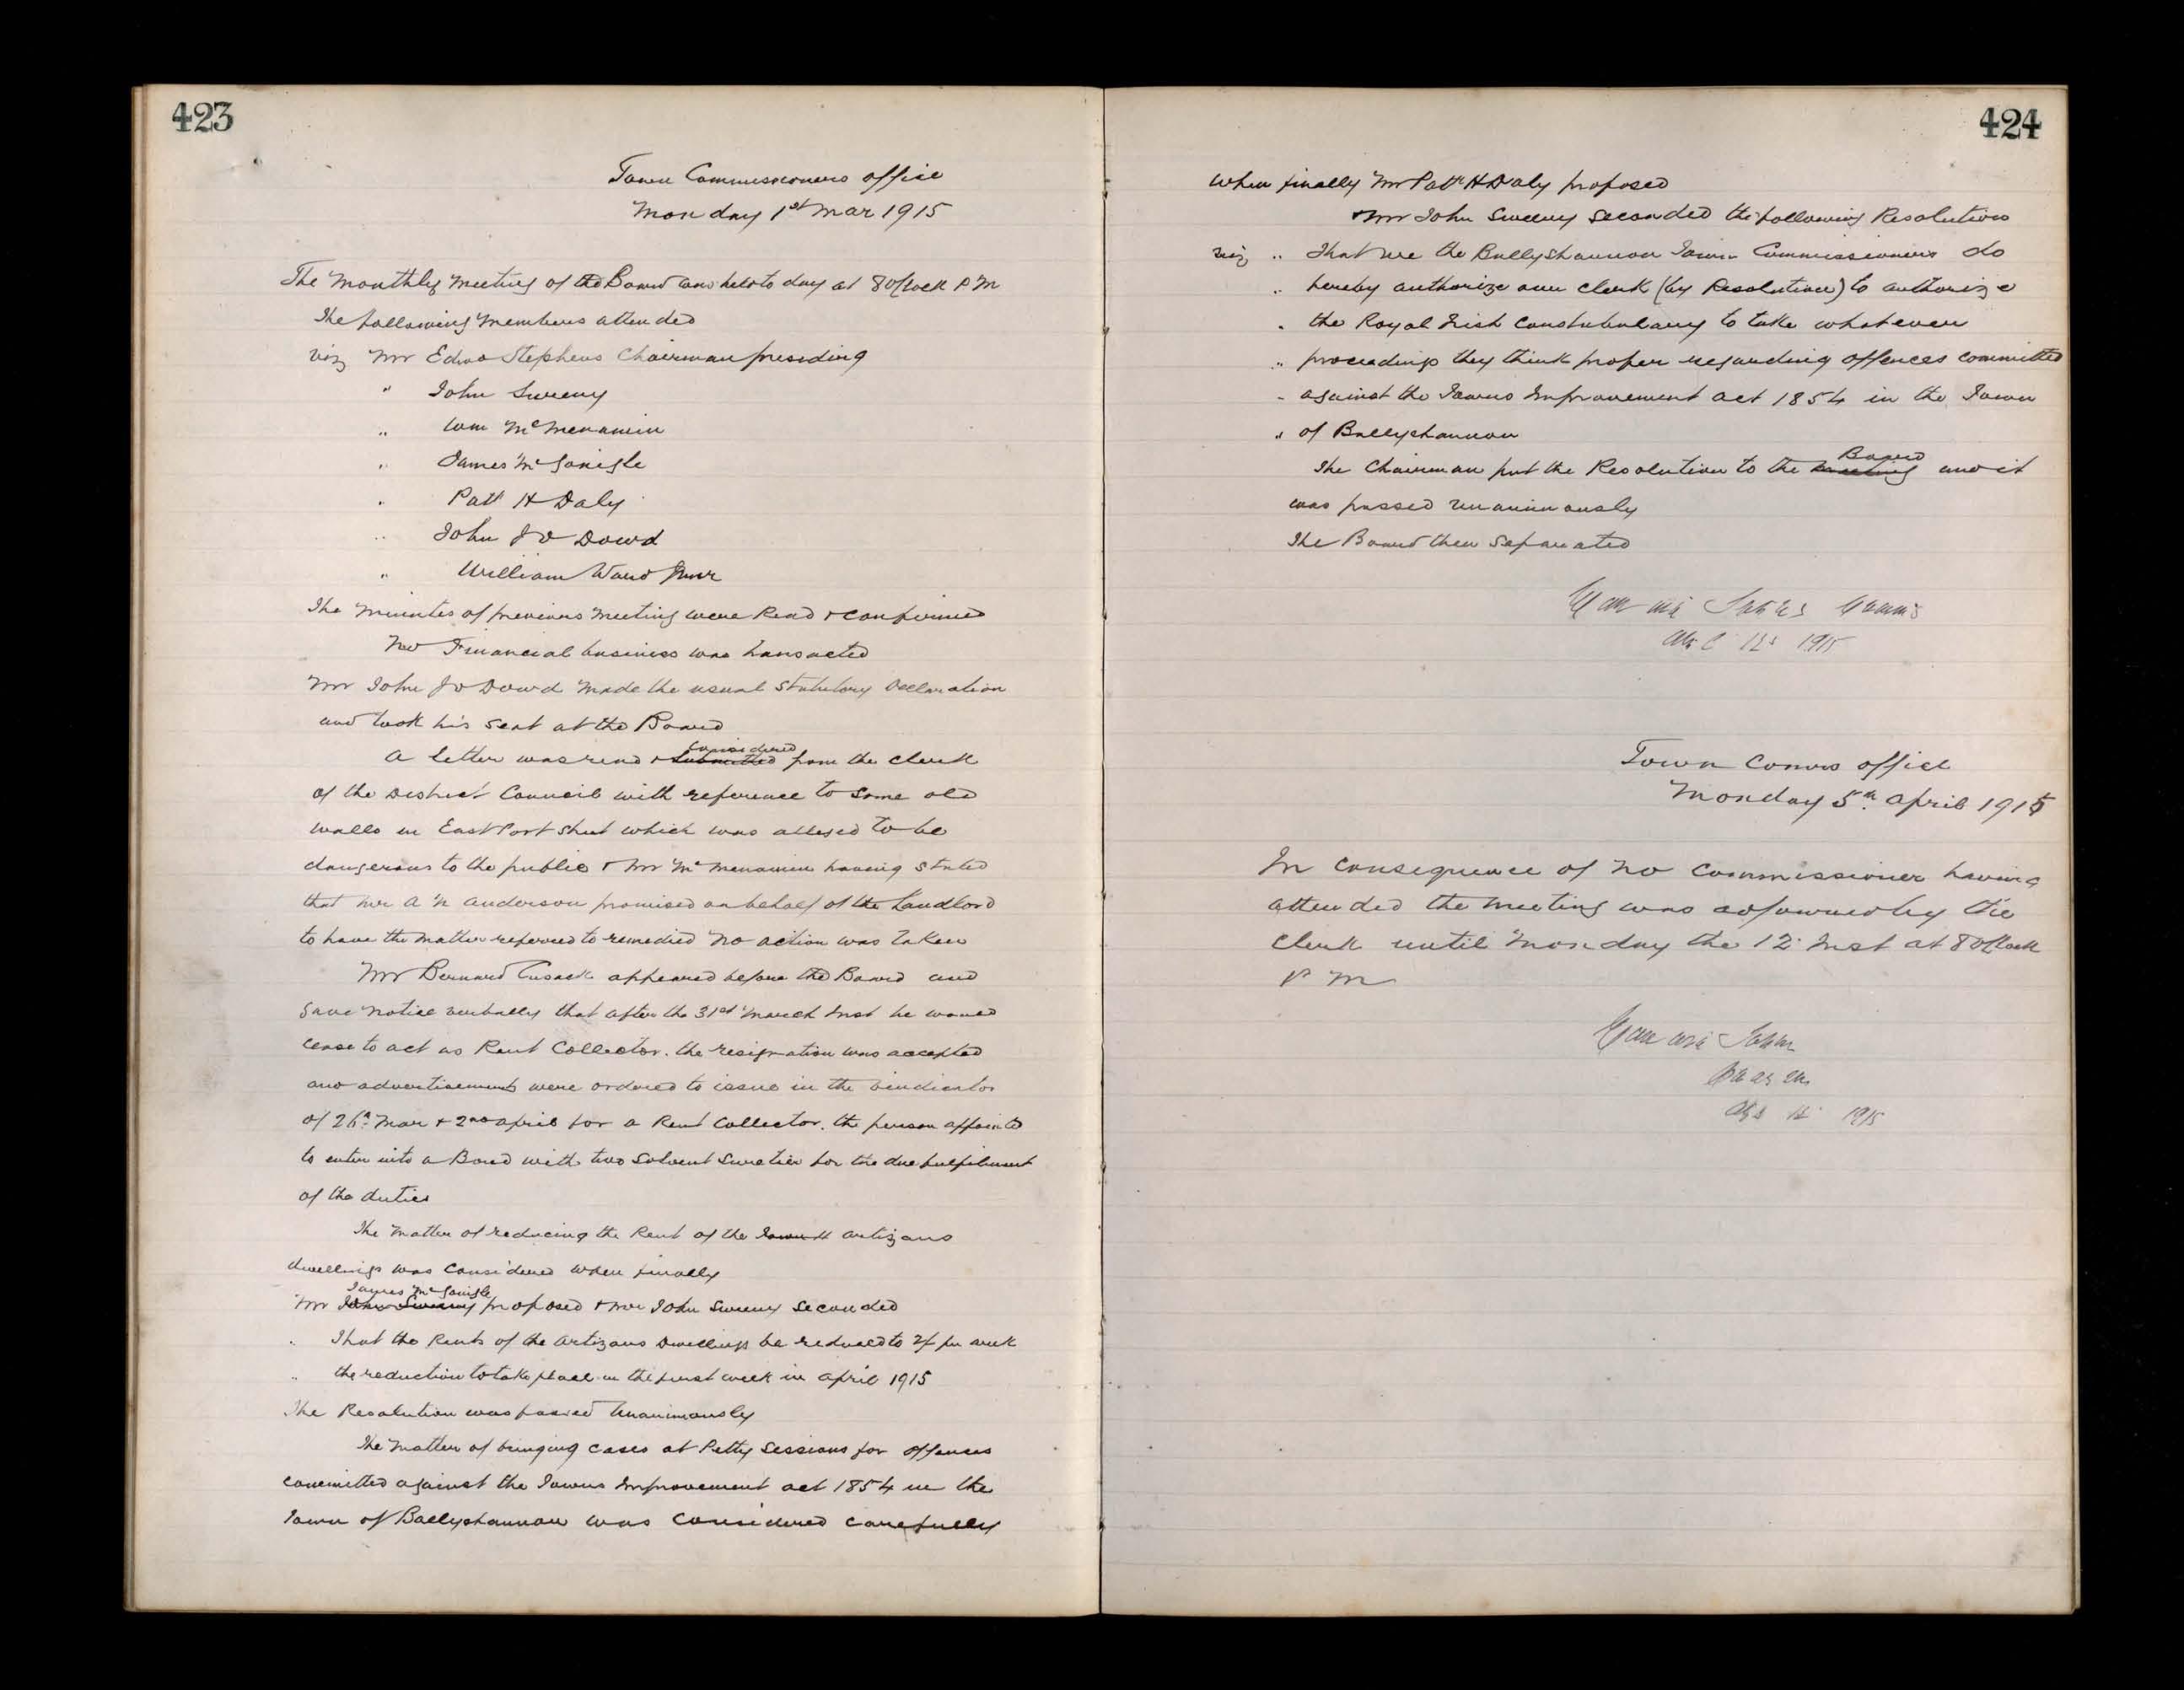 423
Town Commissioners office
Monday 1st Mar 1915
The Monthly Meeting of the Board was held to day at 8 oClock P M
The following Members attended
viz Mr Edwd Stephens Chairman presiding
" John Sweeny
" Wm McMenamin
" James McGonigle
" Patk H Daly
" John J O Dowd
" William Ward Junr
The Minutes of previous Meeting were Read & confirmed
No Financial business was transacted
Mr John J O Dowd Made the usual Statutory Declaration
and took his seat at the Board
A letter was read & submitted considered from the Clerk
of the District Council with reference to some old
walls in East Port Street which was alleged to be
dangerous to the public & Mr McMenamin having stated
that Mr A N Anderson promised on behalf of the Landlord
to have the Matter referred to remedied No action was taken
Mr Bernard Cusack appeared before the Board and
gave Notice verbally that after the 31st March Inst he would
cease to act as Rent Collector. the resignation was accepted
and advertisements were ordered to issue in the vindicator
of 26th Mar & 2nd April for a Rent Collector. the person appointed
to enter into a Bond with two Solvent Sureties for the due fulfilment
of the duties
The Matter of reducing the Rent of the artizans
dwellings was Considered when finally
Mr John Sweeny James McGonigle proposed & Mr John Sweeny seconded
" That the Rents of the Artizans Dwellings be reduced to 2/ per week
" the reduction to take place in the first week in April 1915
The Resolution was passed Unanimously
The Matter of bringing cases at Petty Sessions for offences
committed against the Towns Improvement act 1854 in the
Town of Ballyshannon was Considered carefully
424
When finally Mr Patk H Daly proposed
& Mr John Sweeny seconded the following Resolution
viz " That we the Ballyshannon Town Commissioners do
" hereby authorize our Clerk (by Resolution) to authorize
" the Royal Irish Constabulary to take whatever
" proceedings they think proper regarding offences committed
" against the Towns Improvement act 1854 in the Town
" of Ballyshannon
The Chairman put the Resolution to the meeting Board and it
was passed unanimously
The Board then separated
1915
Town Comrs office
Monday 5th April 1915
In consequence of No Commissioner having
attended the Meeting was adjourned by the
Clerk until Monday the 12 Inst at 8 oClock
P M
1915